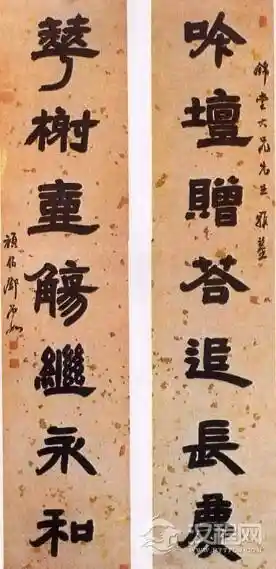 錦堂大兄先生雅鑒
吟壇贈荅追長慶
華榭壺觴繼永和
頑伯鄧石如
汉程网